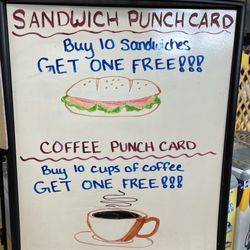 SANDWICH PUNCH CARD
Buy 10 Sandwiches
GET ONE FREE!!!
COFFEE PUNCH CARD
Buy 10 cups of coffee
GET ONE FREE!!!